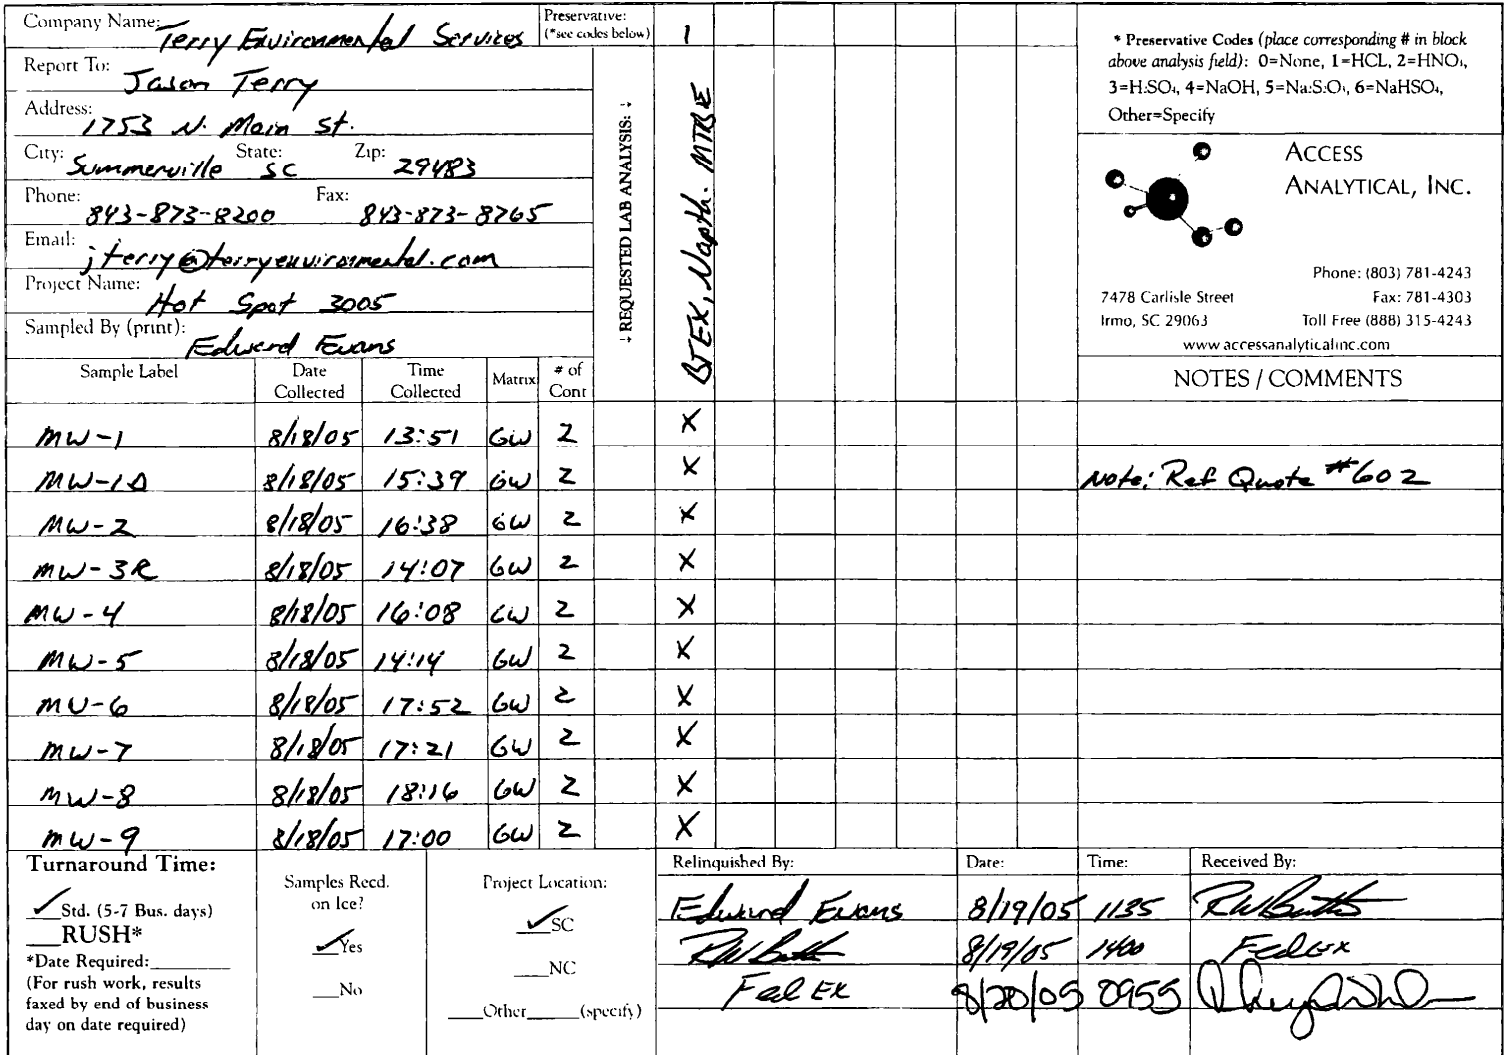 Company Name: Terry Environmental Services
Preservative:
(*see codes below) 1
Report To: Jason Terry
Address: 1753 N. Main St.
City: Summerville State: SC Zip: 29483
Phone: 843-873-8200 Fax: 843-873-8765
Email: jterry@terryenvironmental.com
Project Name: Hot Spot 3005
Sampled By (print): Edward Evans
↓ REQUESTED LAB ANALYSIS: ↓
BTEX, Napth. MTBE
* Preservative Codes (place corresponding # in block
above analysis field): 0=None, 1=HCL, 2=HNO₃,
3=H₂SO₄, 4=NaOH, 5=Na₂S₂O₃, 6=NaHSO₄,
Other=Specify
ACCESS
ANALYTICAL, INC.
Phone: (803) 781-4243
7478 Carlisle Street Fax: 781-4303
Irmo, SC 29063 Toll Free (888) 315-4243
www.accessanalyticalinc.com
Sample Label Date Collected Time Collected Matrix # of Cont NOTES / COMMENTS
MW-1 8/18/05 13:51 GW 2 X
MW-1D 8/18/05 15:39 GW 2 X Note: Ref Quote #602
MW-2 8/18/05 16:38 GW 2 X
MW-3R 8/18/05 14:07 GW 2 X
MW-4 8/18/05 16:08 GW 2 X
MW-5 8/18/05 14:14 GW 2 X
MW-6 8/18/05 17:52 GW 2 X
MW-7 8/18/05 17:21 GW 2 X
MW-8 8/18/05 18:16 GW 2 X
MW-9 8/18/05 17:00 GW 2 X
Turnaround Time:
✓ Std. (5-7 Bus. days)
___RUSH*
*Date Required:________
(For rush work, results
faxed by end of business
day on date required)
Samples Recd.
on Ice?
✓ Yes
___No
Project Location:
✓ SC
___NC
___Other______(specify)
Relinquished By: Date: Time: Received By:
Edward Evans 8/19/05 1135
8/19/05 1400 FedEx
Fed Ex 8/20/05 0955